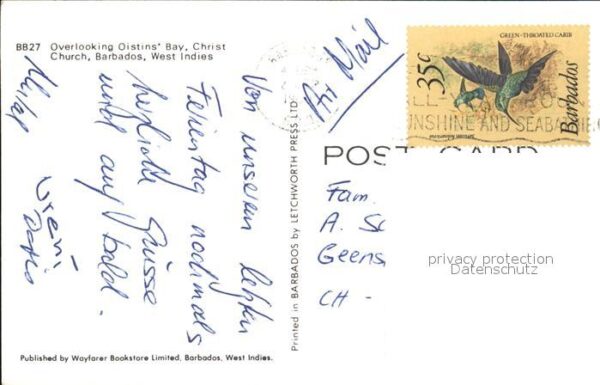 BB27 Overlooking Oistins' Bay, Christ
Church, Barbados, West Indies
Von unserem letzten
Ferientag nochmals
herzliche Grüsse
und auf bald.
Vreni
Published by Wayfarer Bookstore Limited, Barbados, West Indies.
Printed in BARBADOS by LETCHWORTH PRESS LTD.
Air Mail
GREEN-THROATED CARIB
35c
Barbados
SUNSHINE AND SEABATHING
POST CARD
Fam.
A. Sc
Geens
CH -
privacy protection
Datenschutz